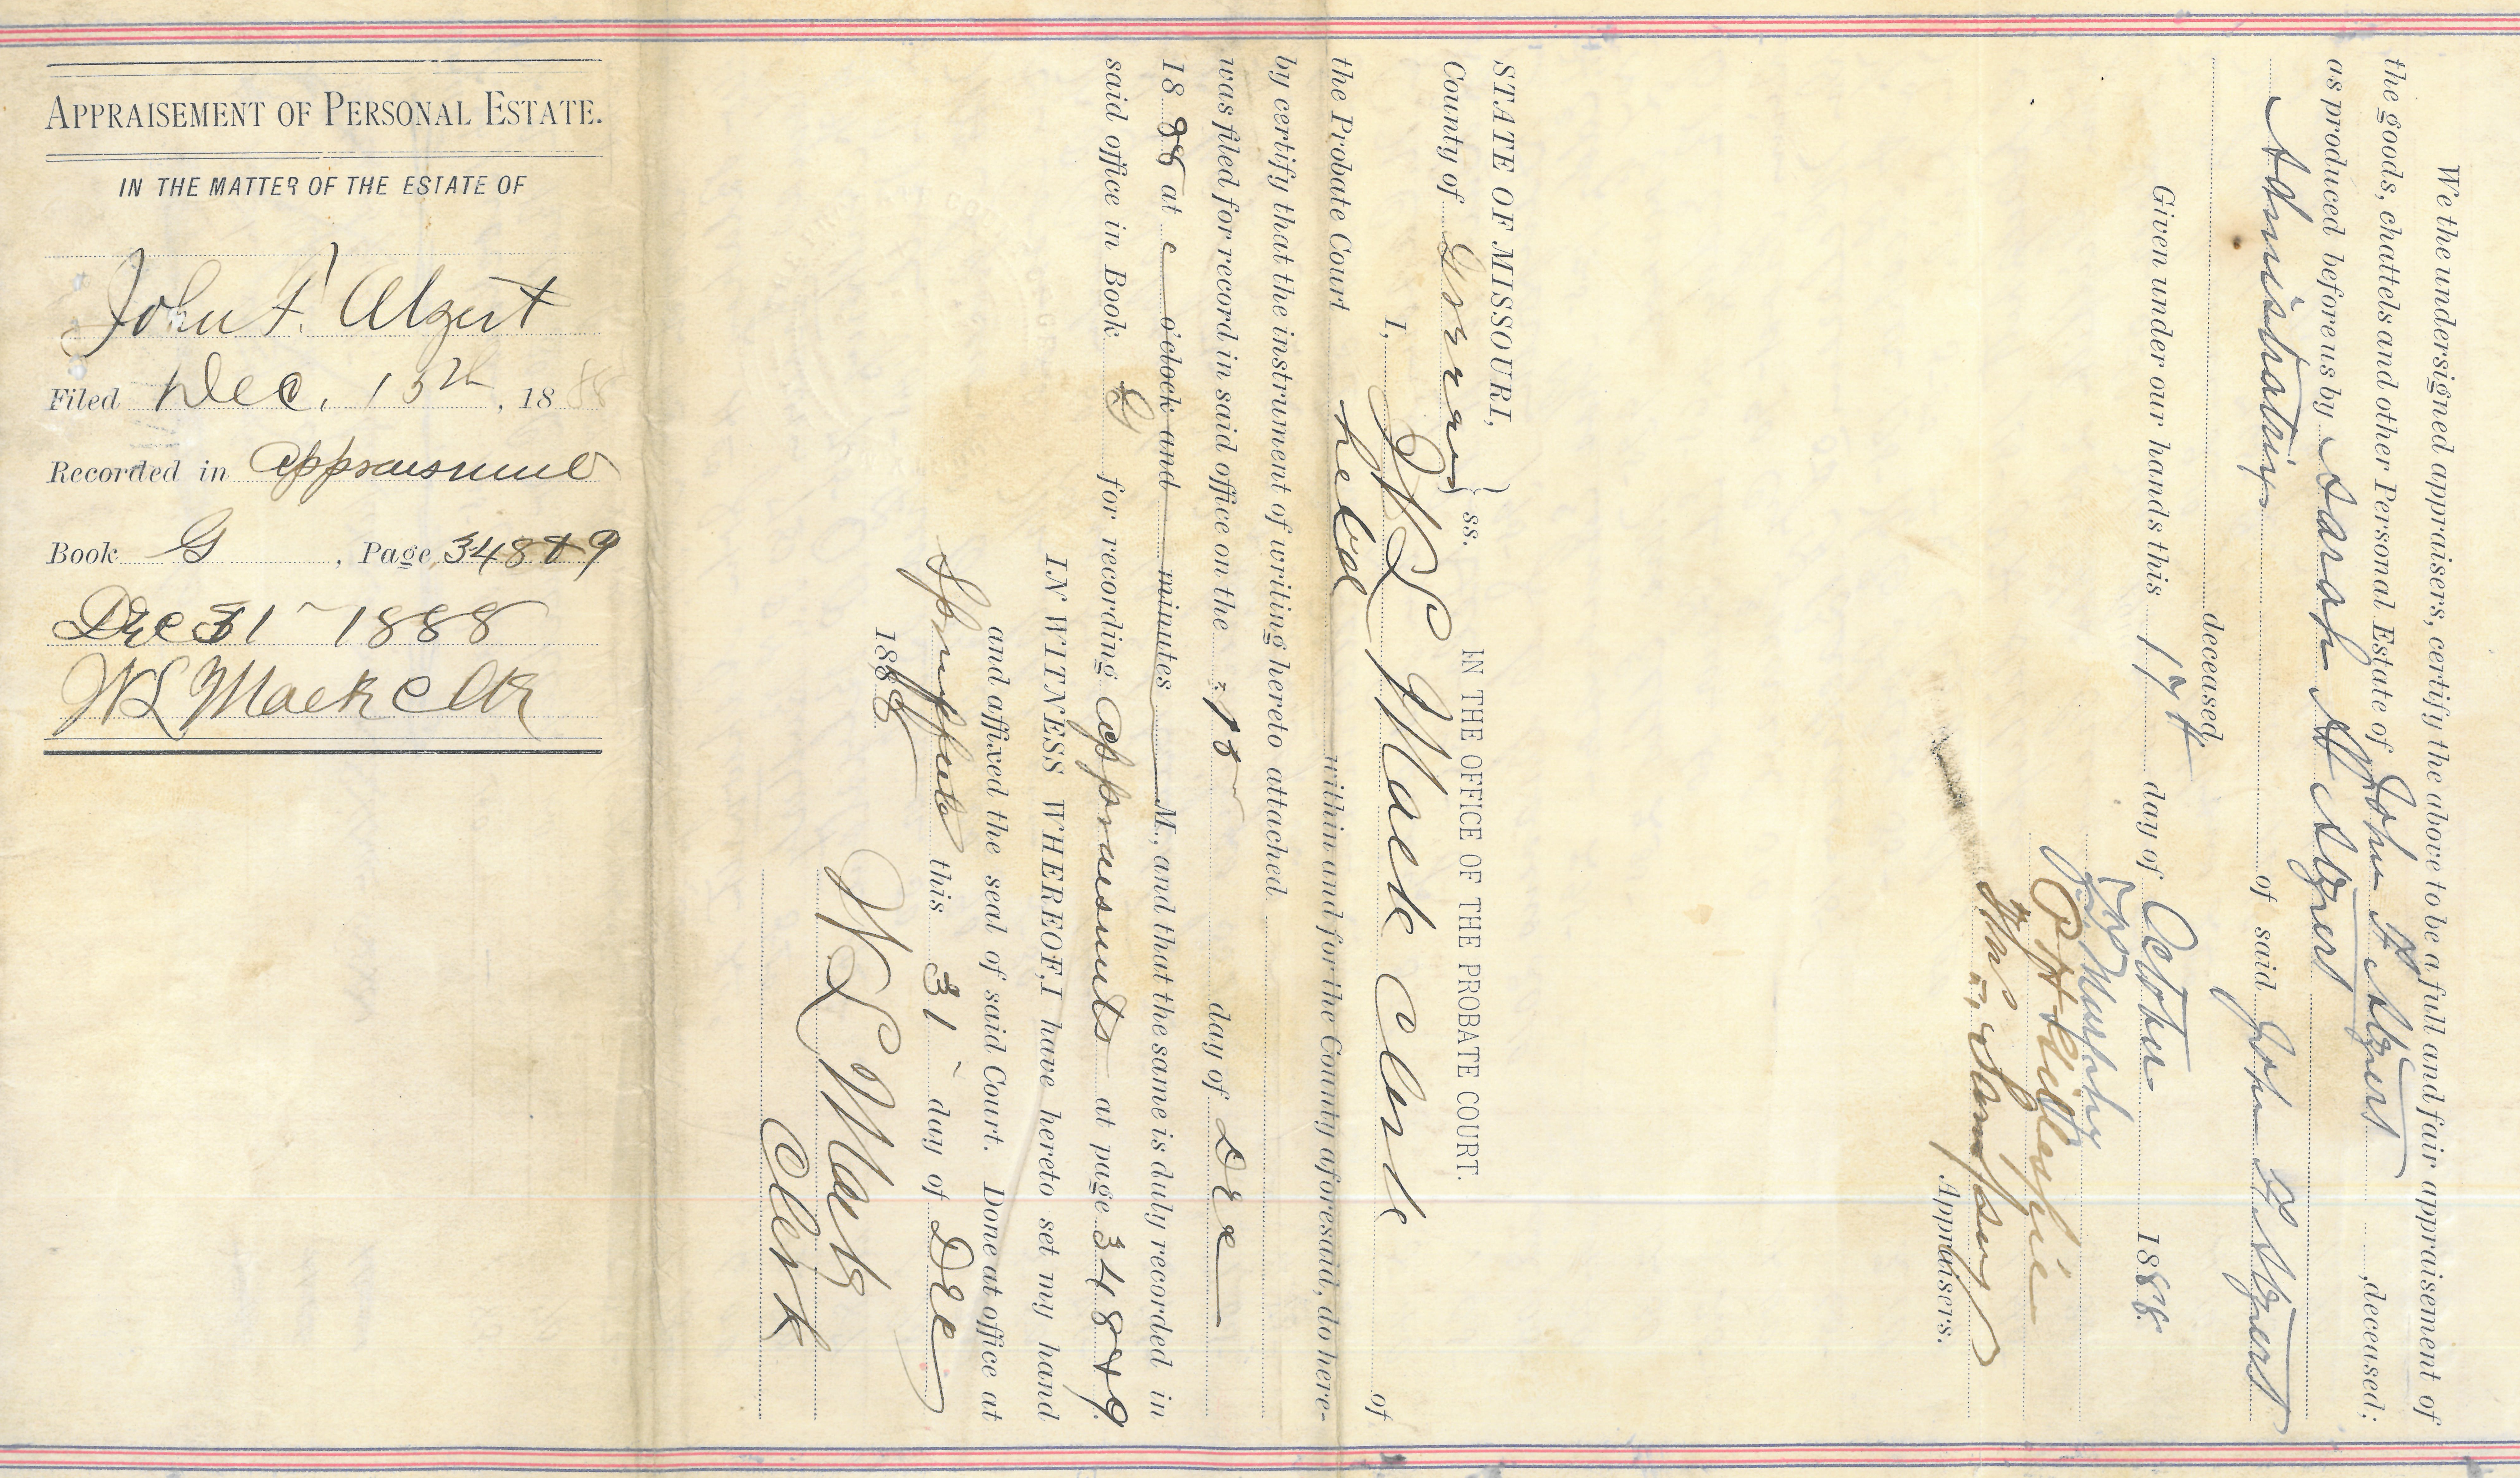 APPRAISEMENT OF PERSONAL ESTATE.
IN THE MATTER OF THE ESTATE OF
John F. Algert
Filed Dec. 15th, 1888
Recorded in appraisment
Book G, Page 348 & 9
Dec 31 - 1888
W L Mack Clk
We the undersigned appraisers, certify the above to be a full and fair appraisement of
the goods, chattels and other Personal Estate of John F. Algert, deceased;
as produced before us by Sarah A Algert
Administratrix of said John F. Algert
deceased.
Given under our hands this 17th day of October 1888.
Murphy
P H Gillespie
Sampsey
Appraisers.
STATE OF MISSOURI,
County of Greene } ss.
IN THE OFFICE OF THE PROBATE COURT.
I, W L Mack Clerk of
the Probate Court held within and for the County aforesaid, do here-
by certify that the instrument of writing hereto attached
was filed for record in said office on the 15 day of Dec
1888 at o'clock and minutes M., and that the same is duly recorded in
said office in Book G for recording appraisments at page 348 & 9.
IN WITNESS WHEREOF, I have hereto set my hand
and affixed the seal of said Court. Done at office at
Springfield this 31 day of Dec
1888
W L Mack
Clerk